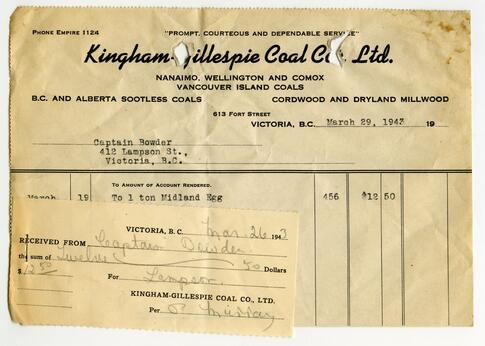 PHONE EMPIRE 1124
"PROMPT, COURTEOUS AND DEPENDABLE SERVICE"
Kingham-Gillespie Coal Co. Ltd.
NANAIMO, WELLINGTON AND COMOX
VANCOUVER ISLAND COALS
B.C. AND ALBERTA SOOTLESS COALS CORDWOOD AND DRYLAND MILLWOOD
613 FORT STREET
VICTORIA, B.C. March 29, 1943 19
Captain Bowder
412 Lampson St.,
Victoria, B.C.
TO AMOUNT OF ACCOUNT RENDERED.
March 19 To 1 ton Midland Egg 456 $12 50
VICTORIA, B.C. Mar. 26 1943
RECEIVED FROM Captain Bowden
the sum of Twelve 50 Dollars
$12.50 For Lampson
KINGHAM-GILLESPIE COAL CO., LTD.
Per Murray